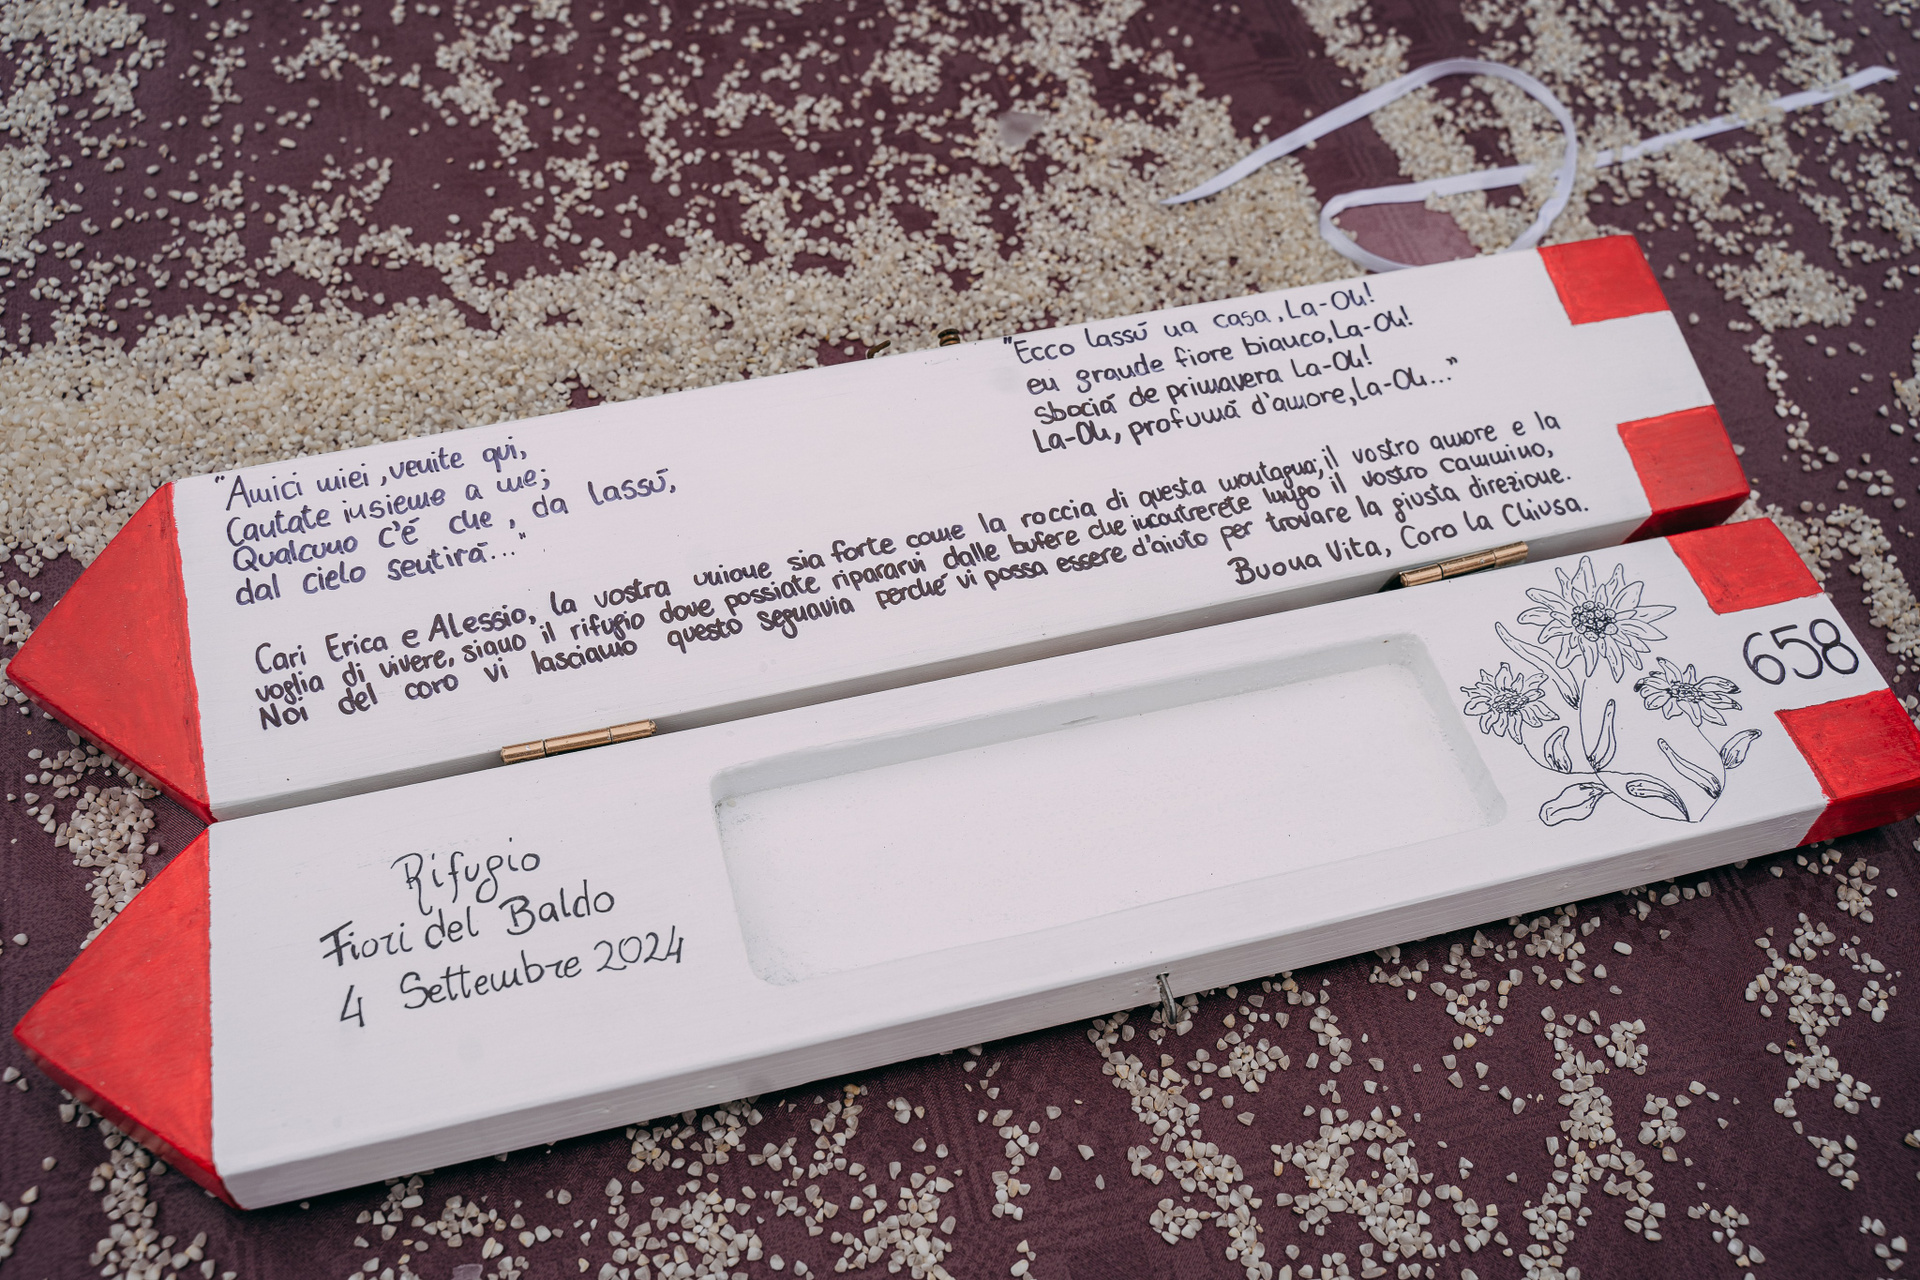 "Amici miei, venite qui,
Cantate insieme a me;
Qualcuno c'é che, da lassú,
dal cielo sentirá..."
"Ecco lassú na casa, La-Oh!
en grande fiore bianco, La-Oh!
sbociá de primavera La-Oh!
La-Oh, profumá d'amore, La-Oh..."
Cari Erica e Alessio, la vostra unione sia forte come la roccia di questa montagna; il vostro amore e la
voglia di vivere, siano il rifugio dove possiate ripararvi dalle bufere che incontrerete lungo il vostro cammino,
Noi del coro vi lasciamo questo segnavia perché vi possa essere d'aiuto per trovare la giusta direzione.
Buona Vita, Coro La Chiusa.
658
Rifugio
Fiori del Baldo
4 Settembre 2024